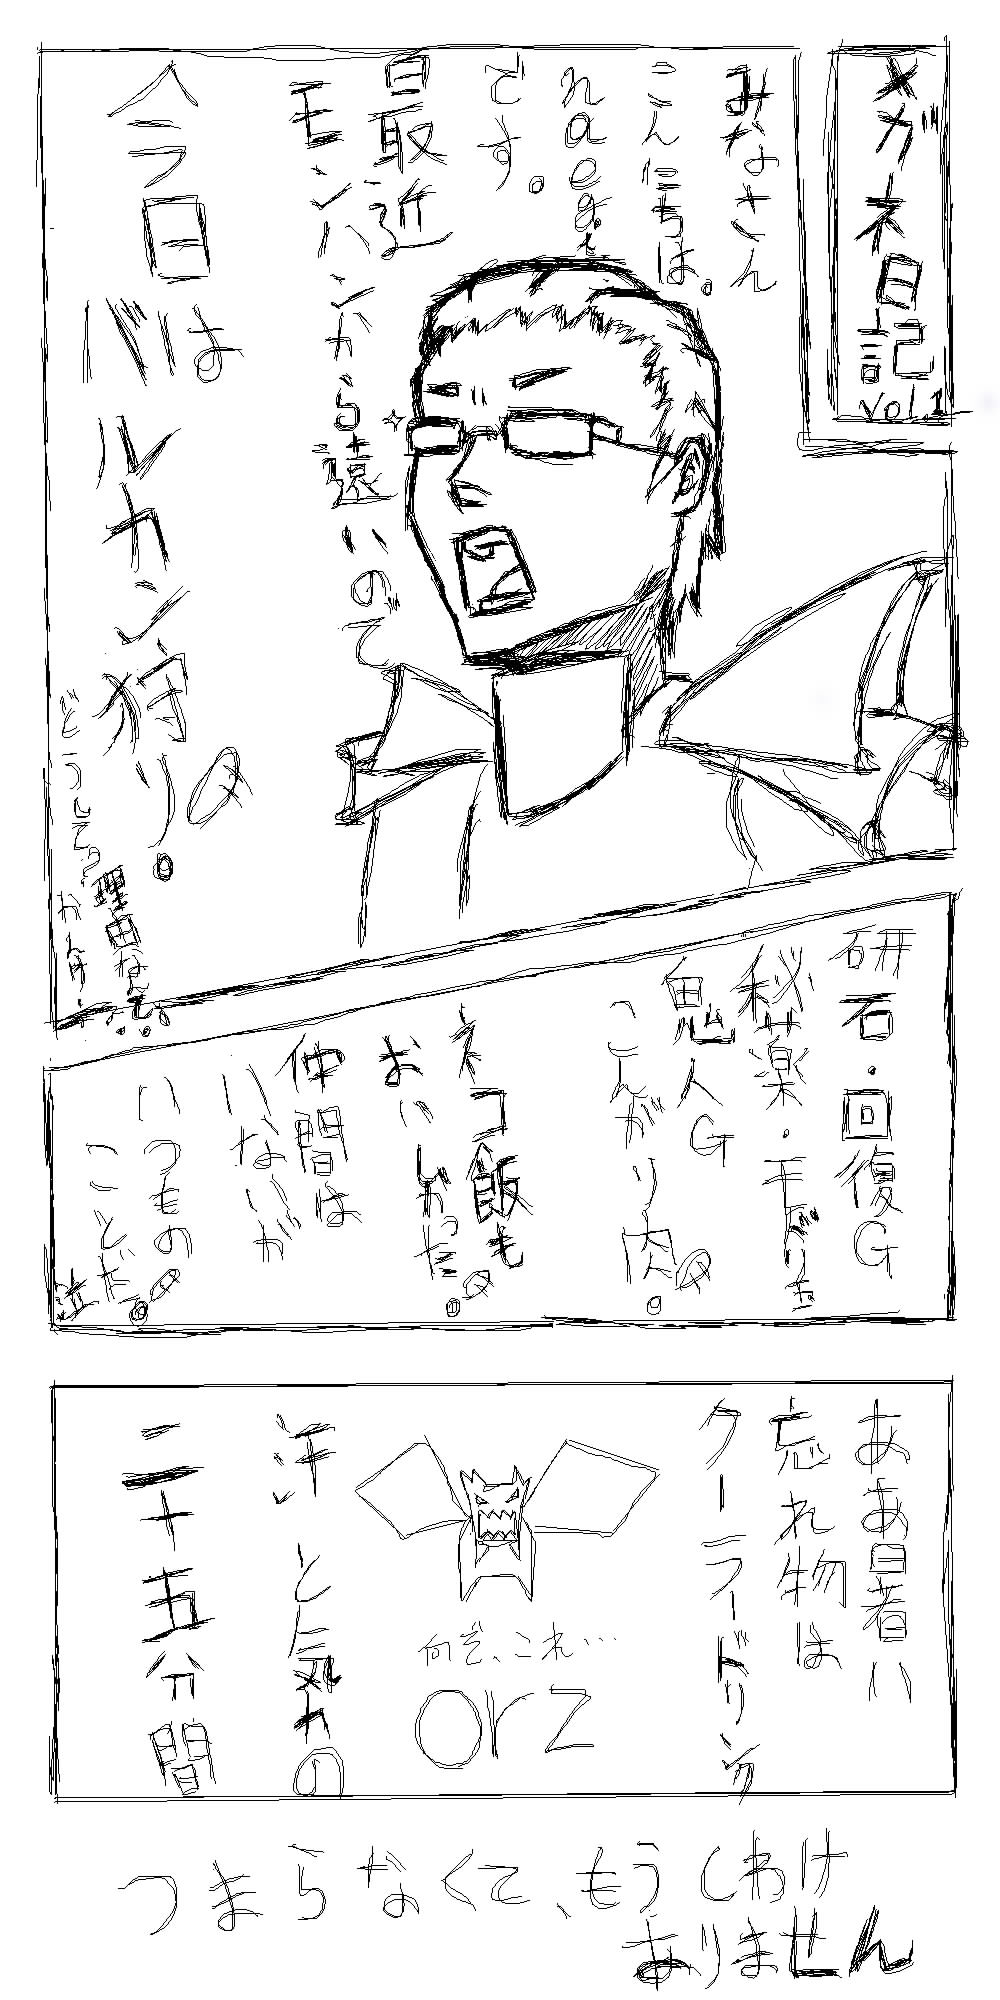 メガネ日記
vol.1
みなさん
こんにちは。
です。
最近
モンハンから遠いので
今日は
バルカン狩り。
理由なし。
研石・回復G
秘薬・千里
鬼人G
こんがり肉。
ネコ飯も
おいしかった。
仲間は
いないが
いつもの
ことだ。
泣
ああ暑い
忘れ物は
クーラードリンク
何ぞ、これ…
orz
洋 と気力の
二十五分間
つまらなくて、もうしわけ
ありません